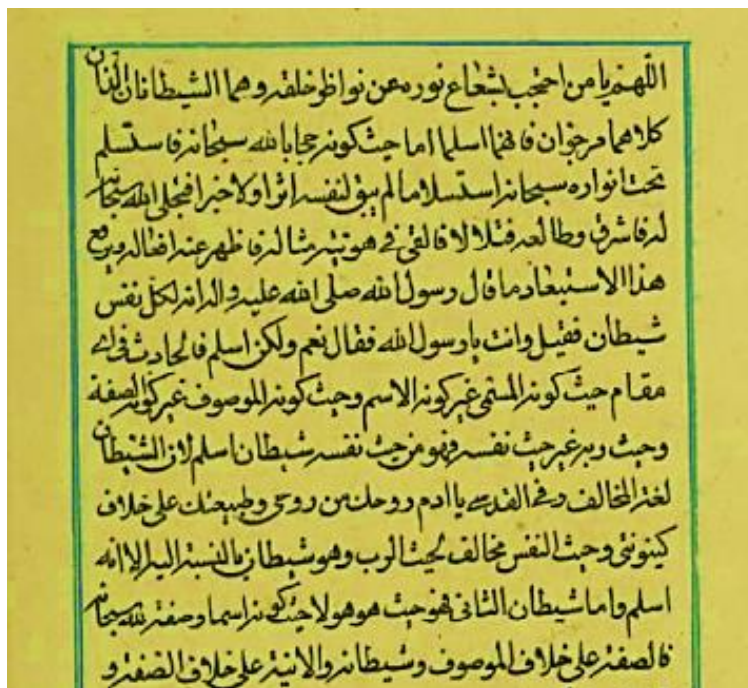 اللهم يا من احتجب بشعاع نوره عن نواظر خلقه وهما الشيطانان اللذان
كلاهما مرخوان فانهما اسلما اما حيث كونه حجابا لله سبحانه فاستسلم
تحت انواره سبحانه استسلاما لم يبق لنفسه اثرا ولا خبرا فتجلى الله سبحانه
له فاشرق وطالعه فتلالا فالقى في هويته مثاله فاظهر عنه افعاله ويرفع
هذا الاستبعاد ما قال رسول الله صلى الله عليه واله انه لكل نفس
شيطان فقيل وانت يا رسول الله فقال نعم ولكن اسلم فالحادث في اي
مقام حيث كونه المسمى غير كونه الاسم وحيث كونه الموصوف غير كونه الصفة
وحيث ربه غير حيث نفسه فهو من حيث نفسه شيطان اسلم لان الشيطان
لغة المخالف وفي القدسي يا ادم روحك من روحي وطبيعتك على خلاف
كينونتي وحيث النفس مخالف لحيث الرب وهو شيطان بالنسبة اليه الا انه
اسلم واما شيطان الثاني فهو حيث هو هو لا حيث كونه اسما وصفة لله سبحانه
فالصفة على خلاف الموصوف وشيطانه والانية على خلاف الصفة و